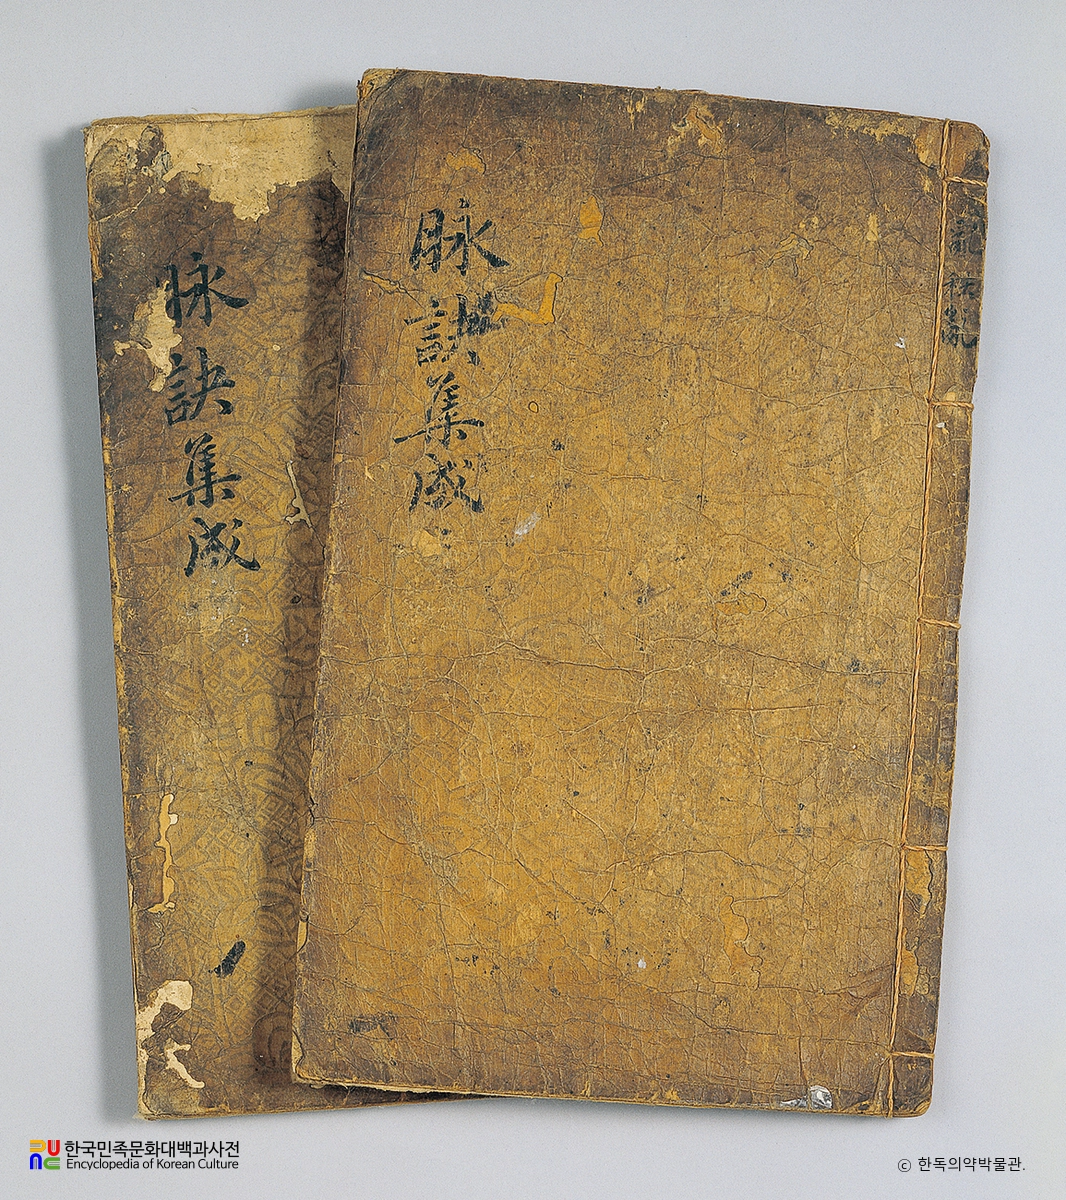 脉訣集成
脉訣集成
한국민족문화대백과사전
Encyclopedia of Korean Culture
© 한독의약박물관.